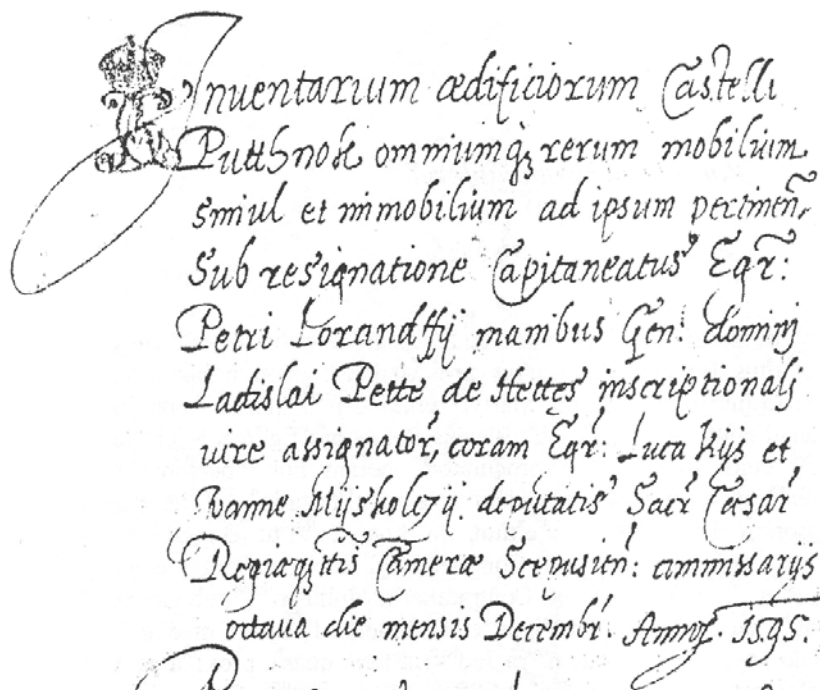 Inuentarium ædificiorum Castelli
Putthnok omniumq₃ rerum mobilium
Simul et immobilium ad ipsum pertineñ,
Sub resignatione Capitaneatus Egr̃:
Petri Lorandffy manibus Gen: dominj
Ladislai Pette de Hettes inscriptionalj
iure assignator̃, coram Egr̃: Luca Kijs et
Ioanne Mijskolczij deputatis Sacr̃ Cæsar̃
Regiæq₃ ttis Cameræ Scepusien̄: commissarijs
octaua die mensis Decembr̃. Anno. 1595.